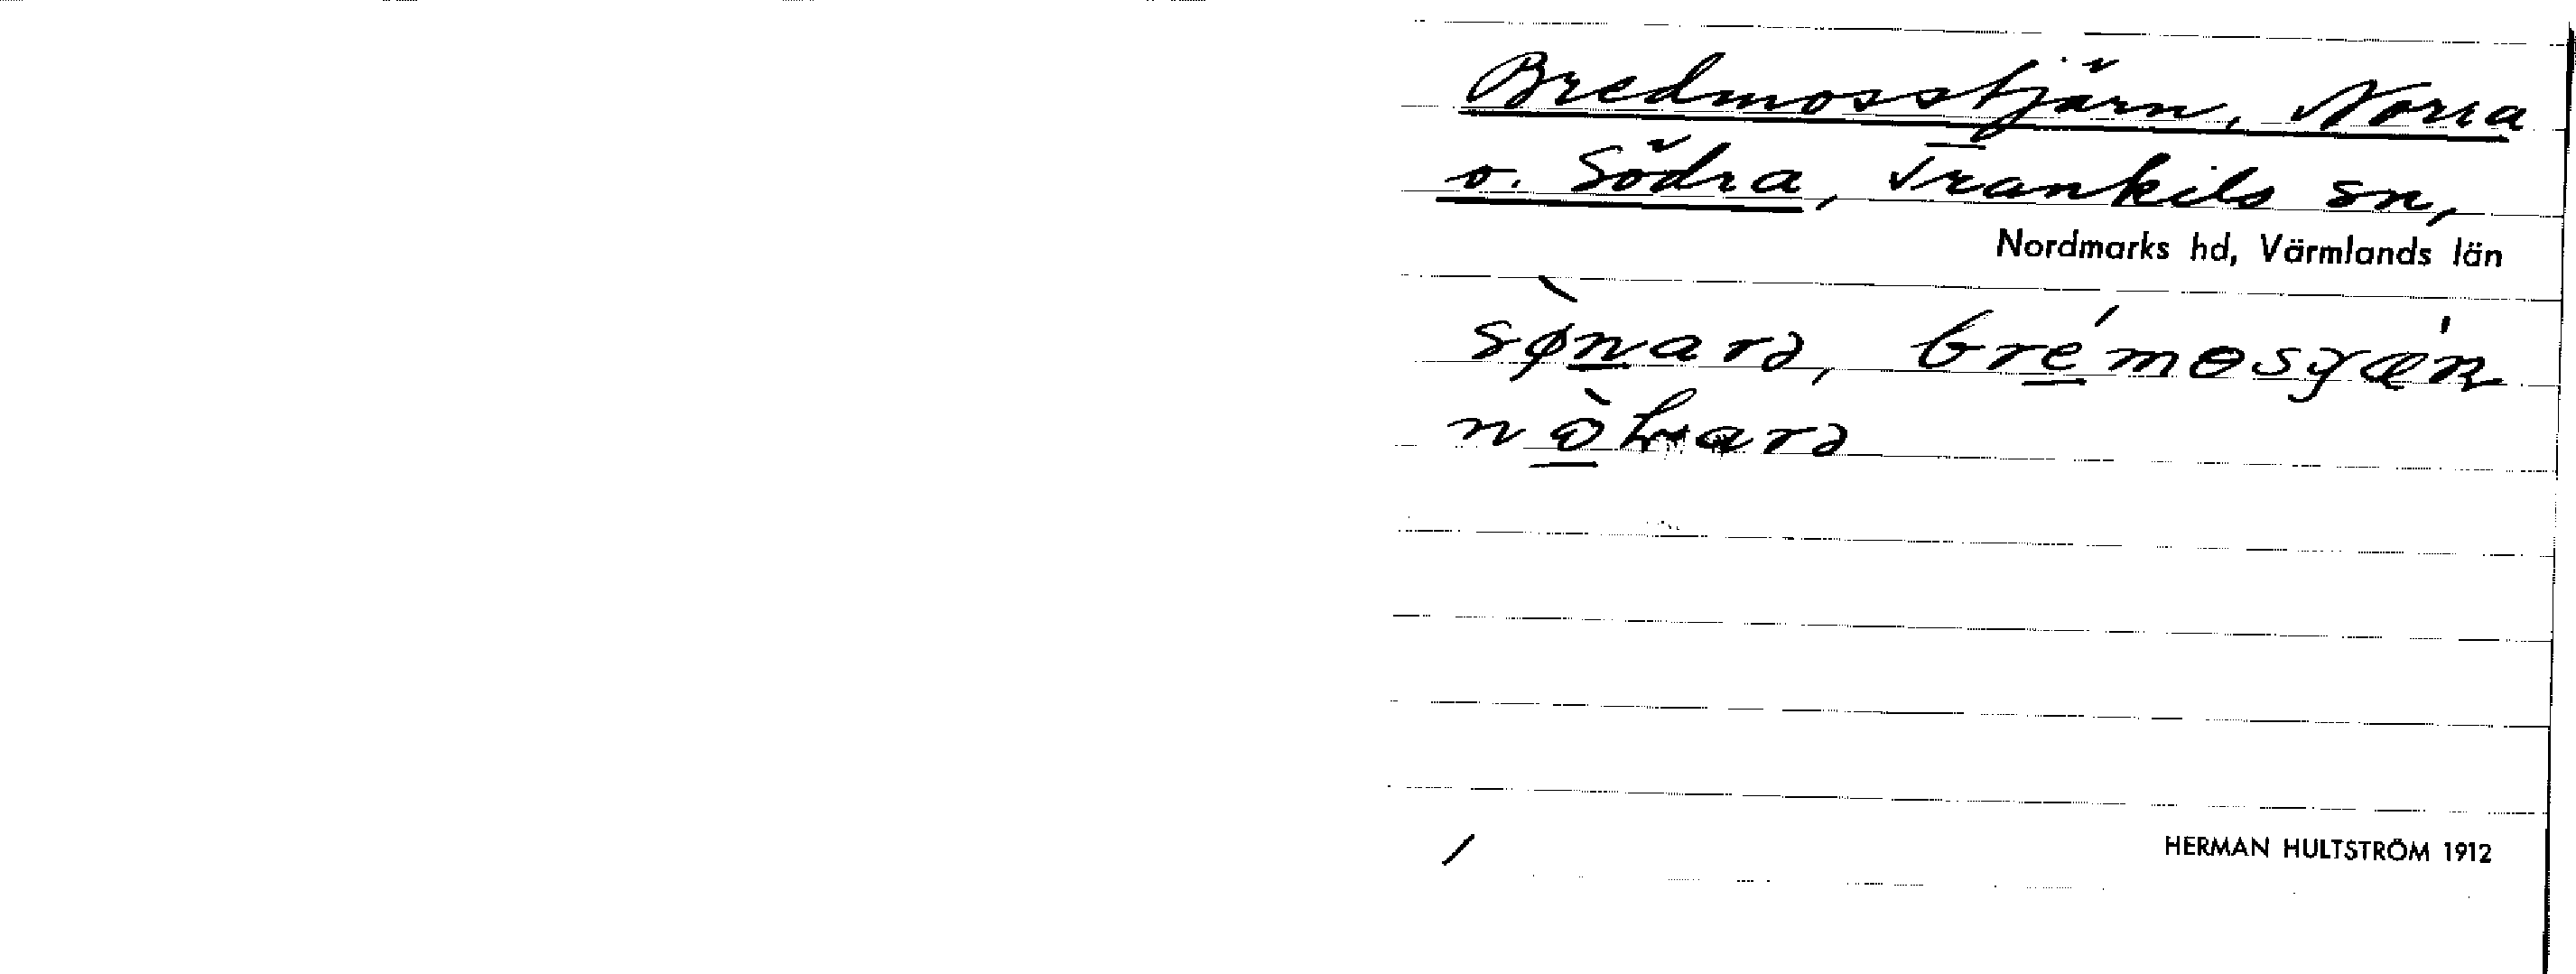 Bredmosstjärn, Norra
o. Södra, Trankils sn,
Nordmarks hd, Värmlands län
sø̀narə, brémosyæ'n
HERMAN HULTSTRÖM 1912